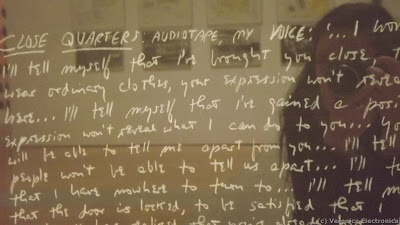 CLOSE QUARTERS: AUDIOTAPE, MY VOICE: '...I won
I'll tell myself that I've bought you close, t
wear ordinary clothes, your expression won't reveal
here... I'll tell myself that I've gained a posi
expression won't reveal what I can do to you... yo
will be able to tell me apart from you... I'll t
people won't be able to tell us apart... I'll t
that I have nowhere to turn to... I'll tell m
that the door is locked, to be satisfied that
that you're already
(c) Veronica Electronica